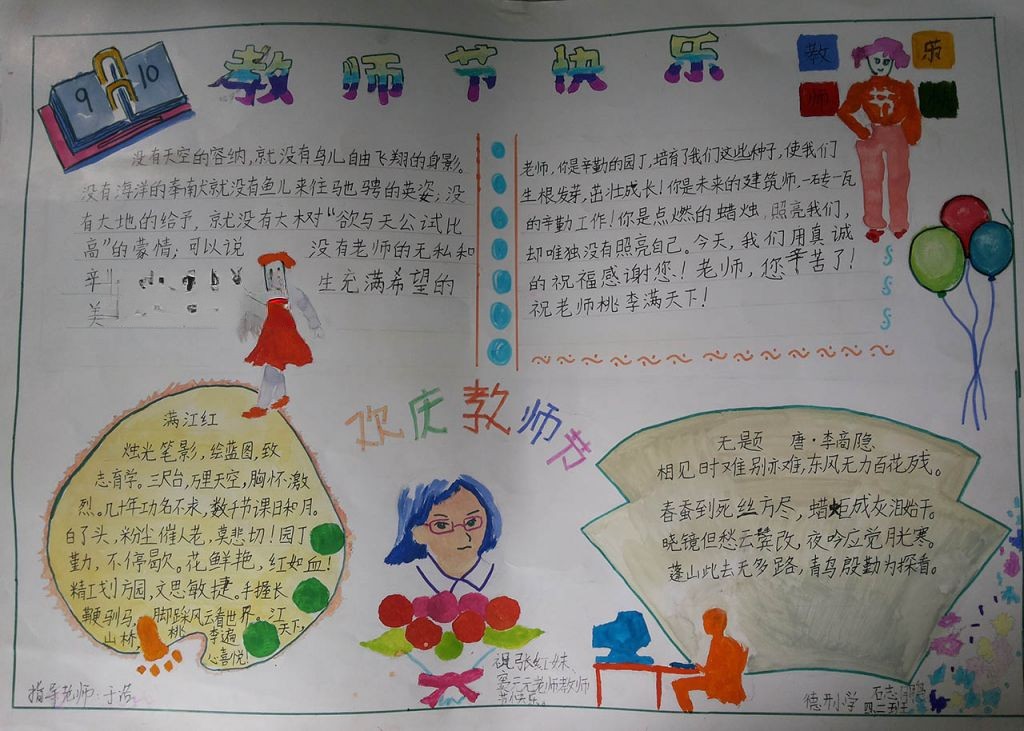 教师节快乐
9 10
教 乐
师 节
没有天空的容纳,就没有鸟儿自由飞翔的身影。
没有海洋的奉献就没有鱼儿来往驰骋的英姿;没
有大地的给予,就没有大树“欲与天公试比
高”的豪情;可以说 没有老师的无私和
辛 生充满希望的
美
老师,你是辛勤的园丁,培育了我们这些种子,使我们
生根发芽,茁壮成长!你是未来的建筑师,一砖一瓦
的辛勤工作!你是点燃的蜡烛,照亮我们,
却唯独没有照亮自己。今天,我们用真诚
的祝福感谢您!老师,您辛苦了!
祝老师桃李满天下!
欢庆教师节
满江红
烛光笔影,绘蓝图,致
志育学。三尺台,万里天空,胸怀激
烈。几十年功名不求,数千节课日和月。
白了头,粉尘催人老,莫悲切!园丁
勤,不停歇。花鲜艳,红如血!
精工划方园,文思敏捷。手握长
鞭驯马,脚踩风云看世界。江
山桥,桃李遍天下,
心喜悦!
无题 唐·李商隐
相见时难别亦难,东风无力百花残。
春蚕到死丝方尽,蜡炬成灰泪始干。
晓镜但愁云鬓改,夜吟应觉月光寒。
蓬山此去无多路,青鸟殷勤为探看。
祝张红妹、
元老师教师
节快乐。
指导老师:于洁
德开小学 石志
四、二班